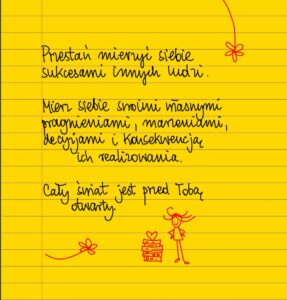 Przestań mierzyć siebie
sukcesami innych ludzi.
Mierz siebie swoimi własnymi
pragnieniami, marzeniami,
decyzjami i konsekwencją
ich realizowania.
Cały świat jest przed Tobą
otwarty